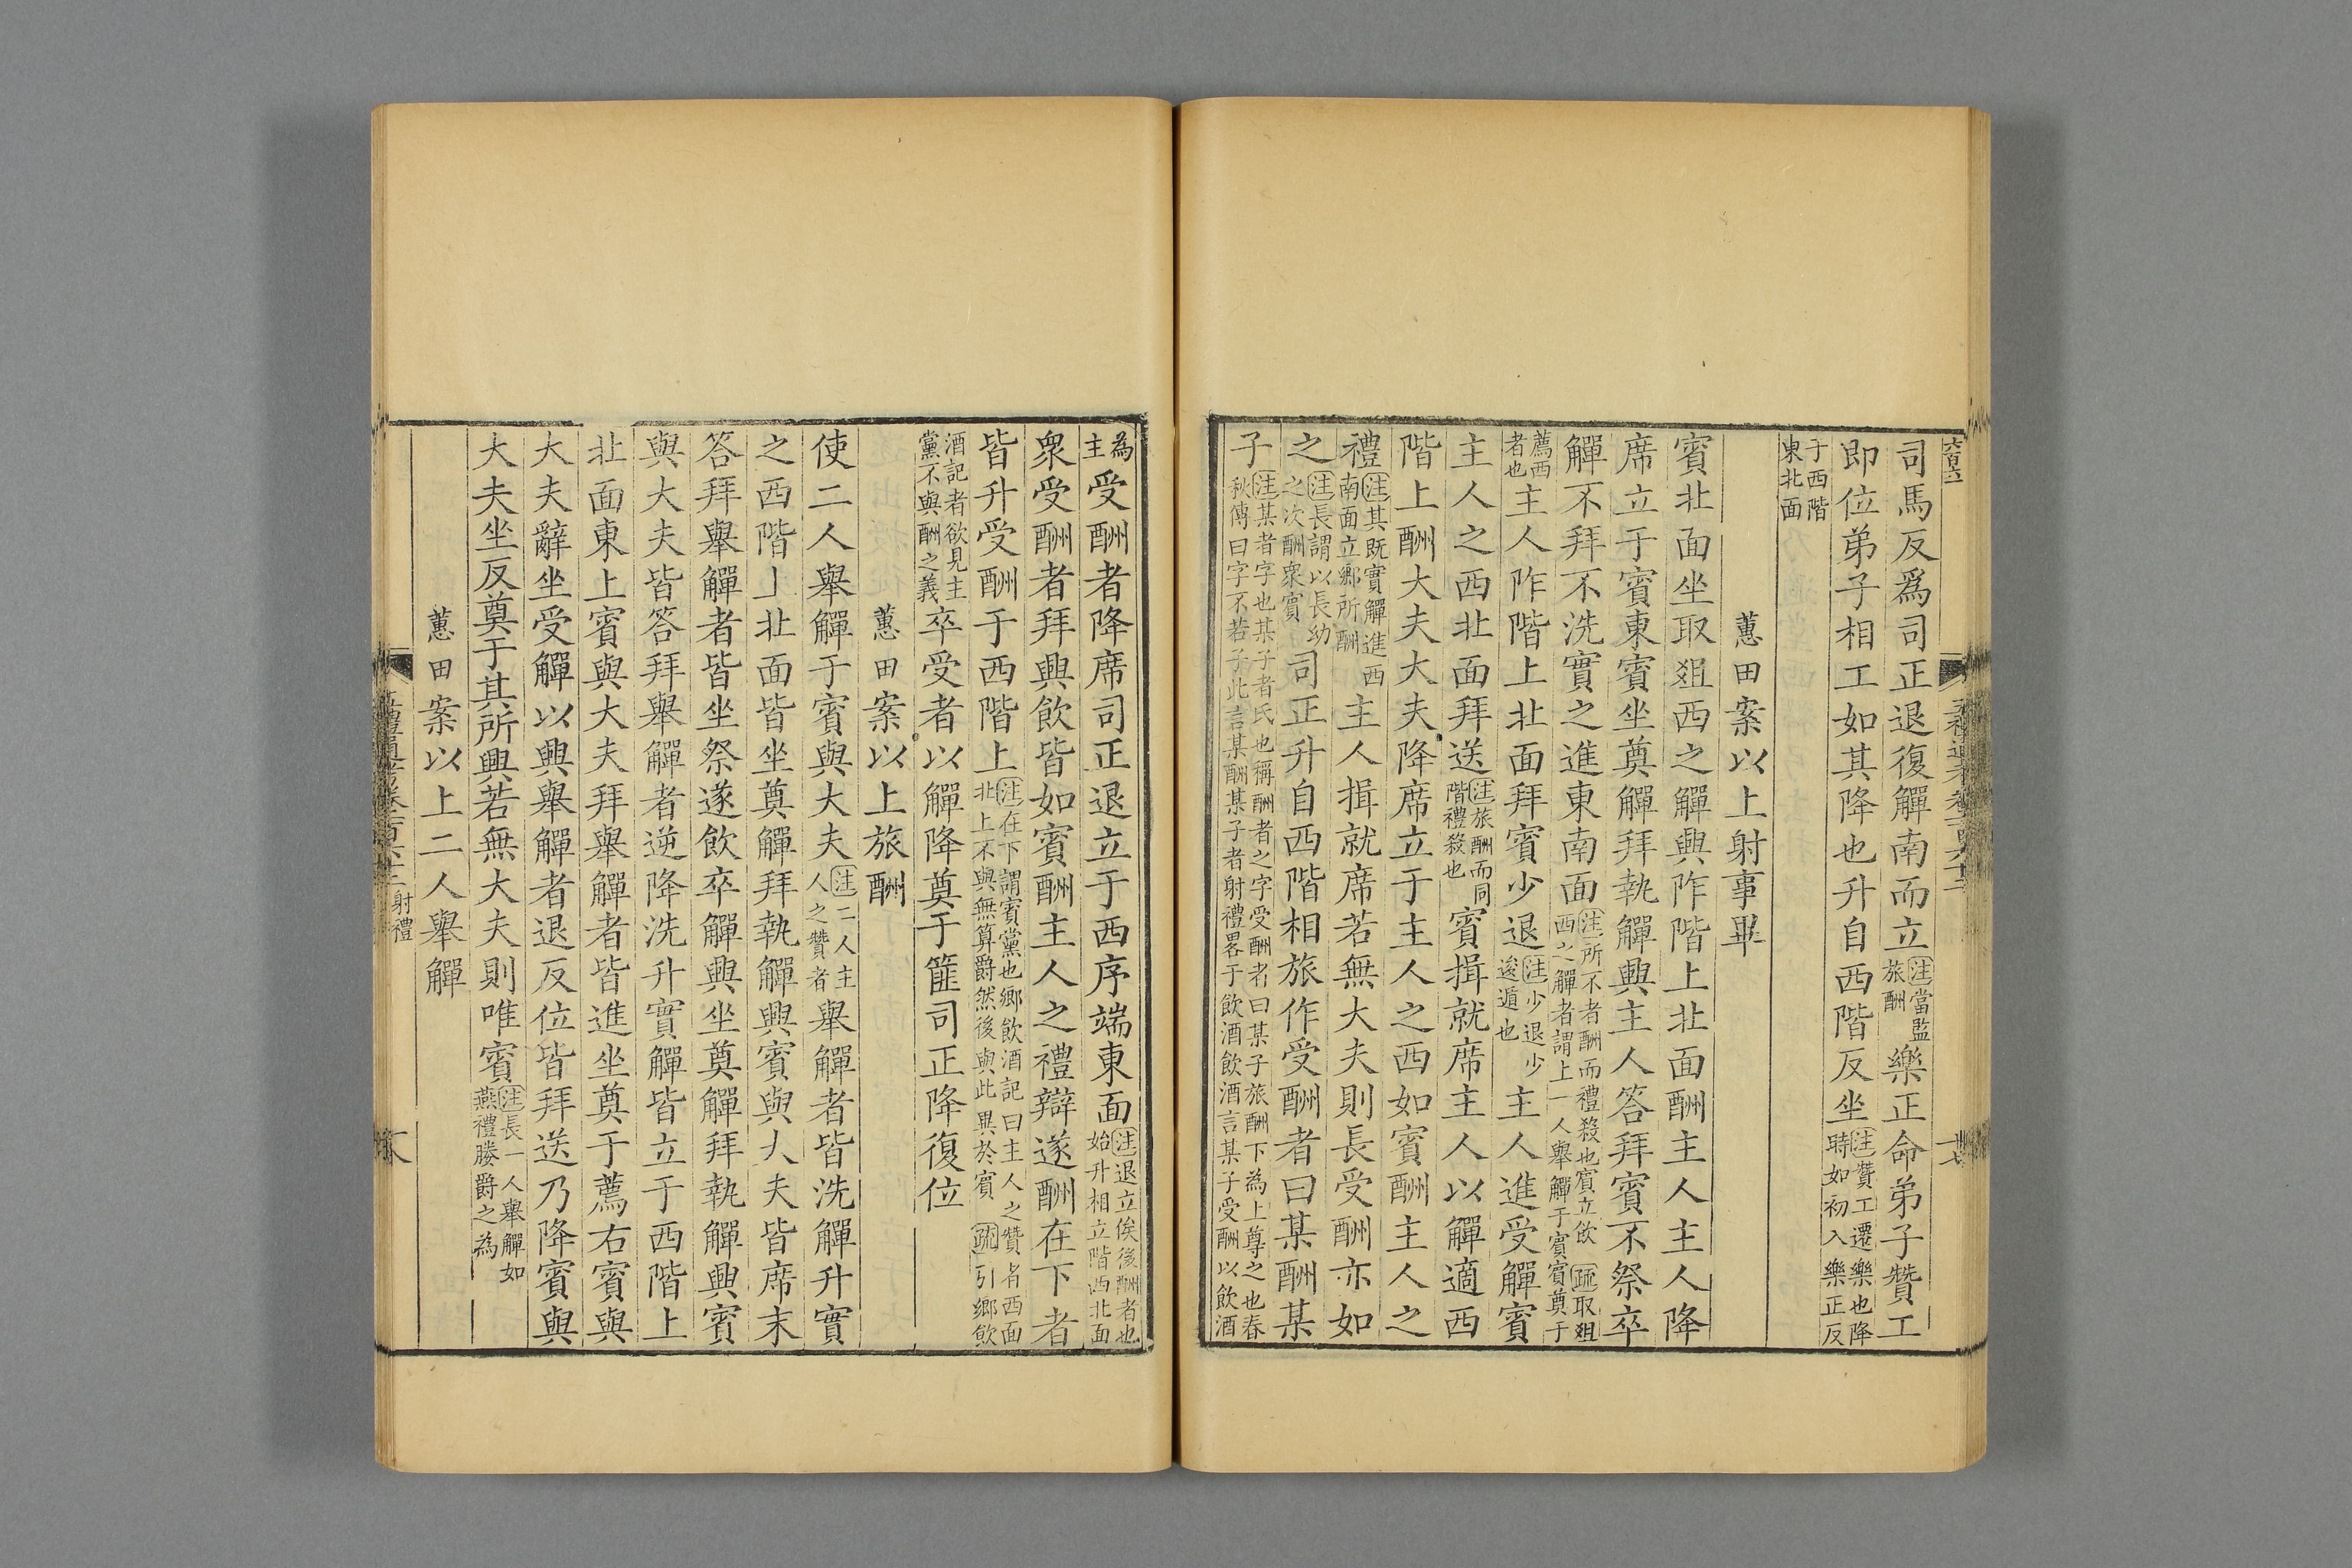 六百六
司馬反爲司正退復觶南而立注當監旅酬樂正命弟子贊工
即位弟子相工如其降也升自西階反坐注贊工遷樂也降時如初入樂正反
于西階東北面
蕙田案以上射事畢
賓北面坐取俎西之觶興阼階上北面酬主人主人降
席立于賓東賓坐奠觶拜執觶興主人答拜賓不祭卒
觶不拜不洗實之進東南面注所不者酬而禮殺也賓立飲疏取俎西之觶者謂上一人舉觶于賓賓奠于
薦西者也主人阼階上北面拜賓少退注少退少逡遁也主人進受觶賓
主人之西北面拜送注旅酬而同階禮殺也賓揖就席主人以觶適西
階上酬大夫大夫降席立于主人之西如賓酬主人之
禮注其既實觶進西南面立鄉所酬主人揖就席若無大夫則長受酬亦如
之注長謂以長幼之次酬衆賓司正升自西階相旅作受酬者曰某酬某
子注某者字也某子者氏也稱酬者之字受酬者曰某子旅酬下為上尊之也春秋傳曰字不若子此言某酬某子者射禮畧于飲酒飲酒言某子受酬以飲酒
為主受酬者降席司正退立于西序端東面注退立俟後酬者也始升相立階西北面
衆受酬者拜興飲皆如賓酬主人之禮辯遂酬在下者
皆升受酬于西階上注在下謂賓黨也鄉飲酒記曰主人之贊者西面北上不與無算爵然後與此異於賓疏引鄉飲
酒記者欲見主黨不與酬之義卒受者以觶降奠于篚司正降復位
蕙田案以上旅酬
使二人舉觶于賓與大夫注二人主人之贊者舉觶者皆洗觶升實
之西階上北面皆坐奠觶拜執觶興賓與大夫皆席末
答拜舉觶者皆坐祭遂飲卒觶興坐奠觶拜執觶興賓
與大夫皆答拜舉觶者逆降洗升實觶皆立于西階上
北面東上賓與大夫拜舉觶者皆進坐奠于薦右賓與
大夫辭坐受觶以興舉觶者退反位皆拜送乃降賓與
大夫坐反奠于其所興若無大夫則唯賓注長一人舉觶如燕禮媵爵之為
蕙田案以上二人舉觶
射禮